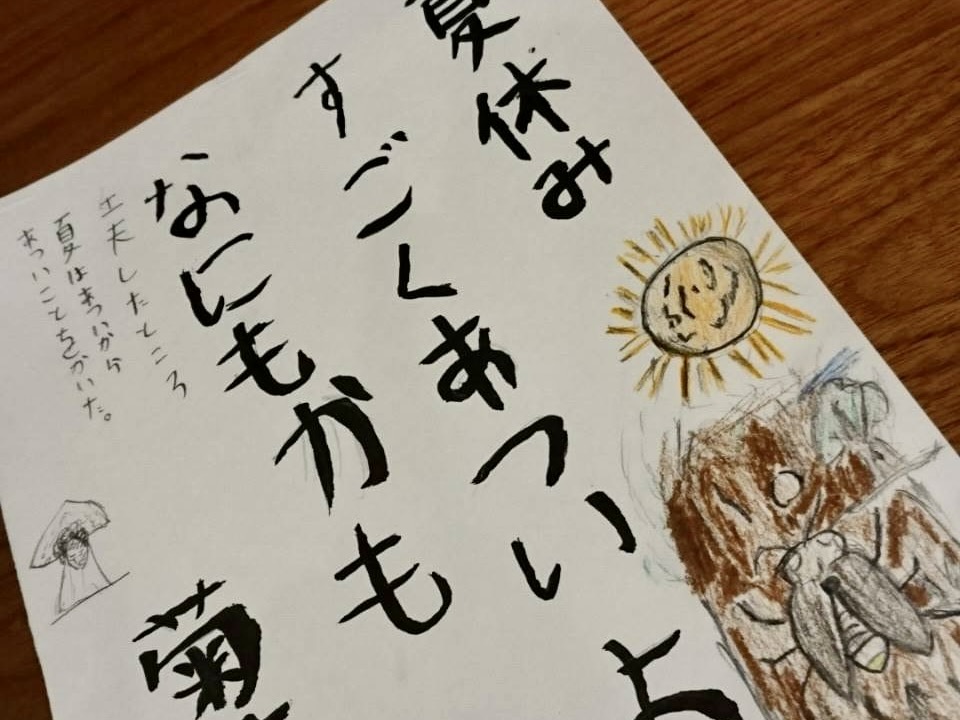 夏休み
すごくあついよ
なにもかも
菊
土夫したところ
夏はあついから
あついことをかいた。